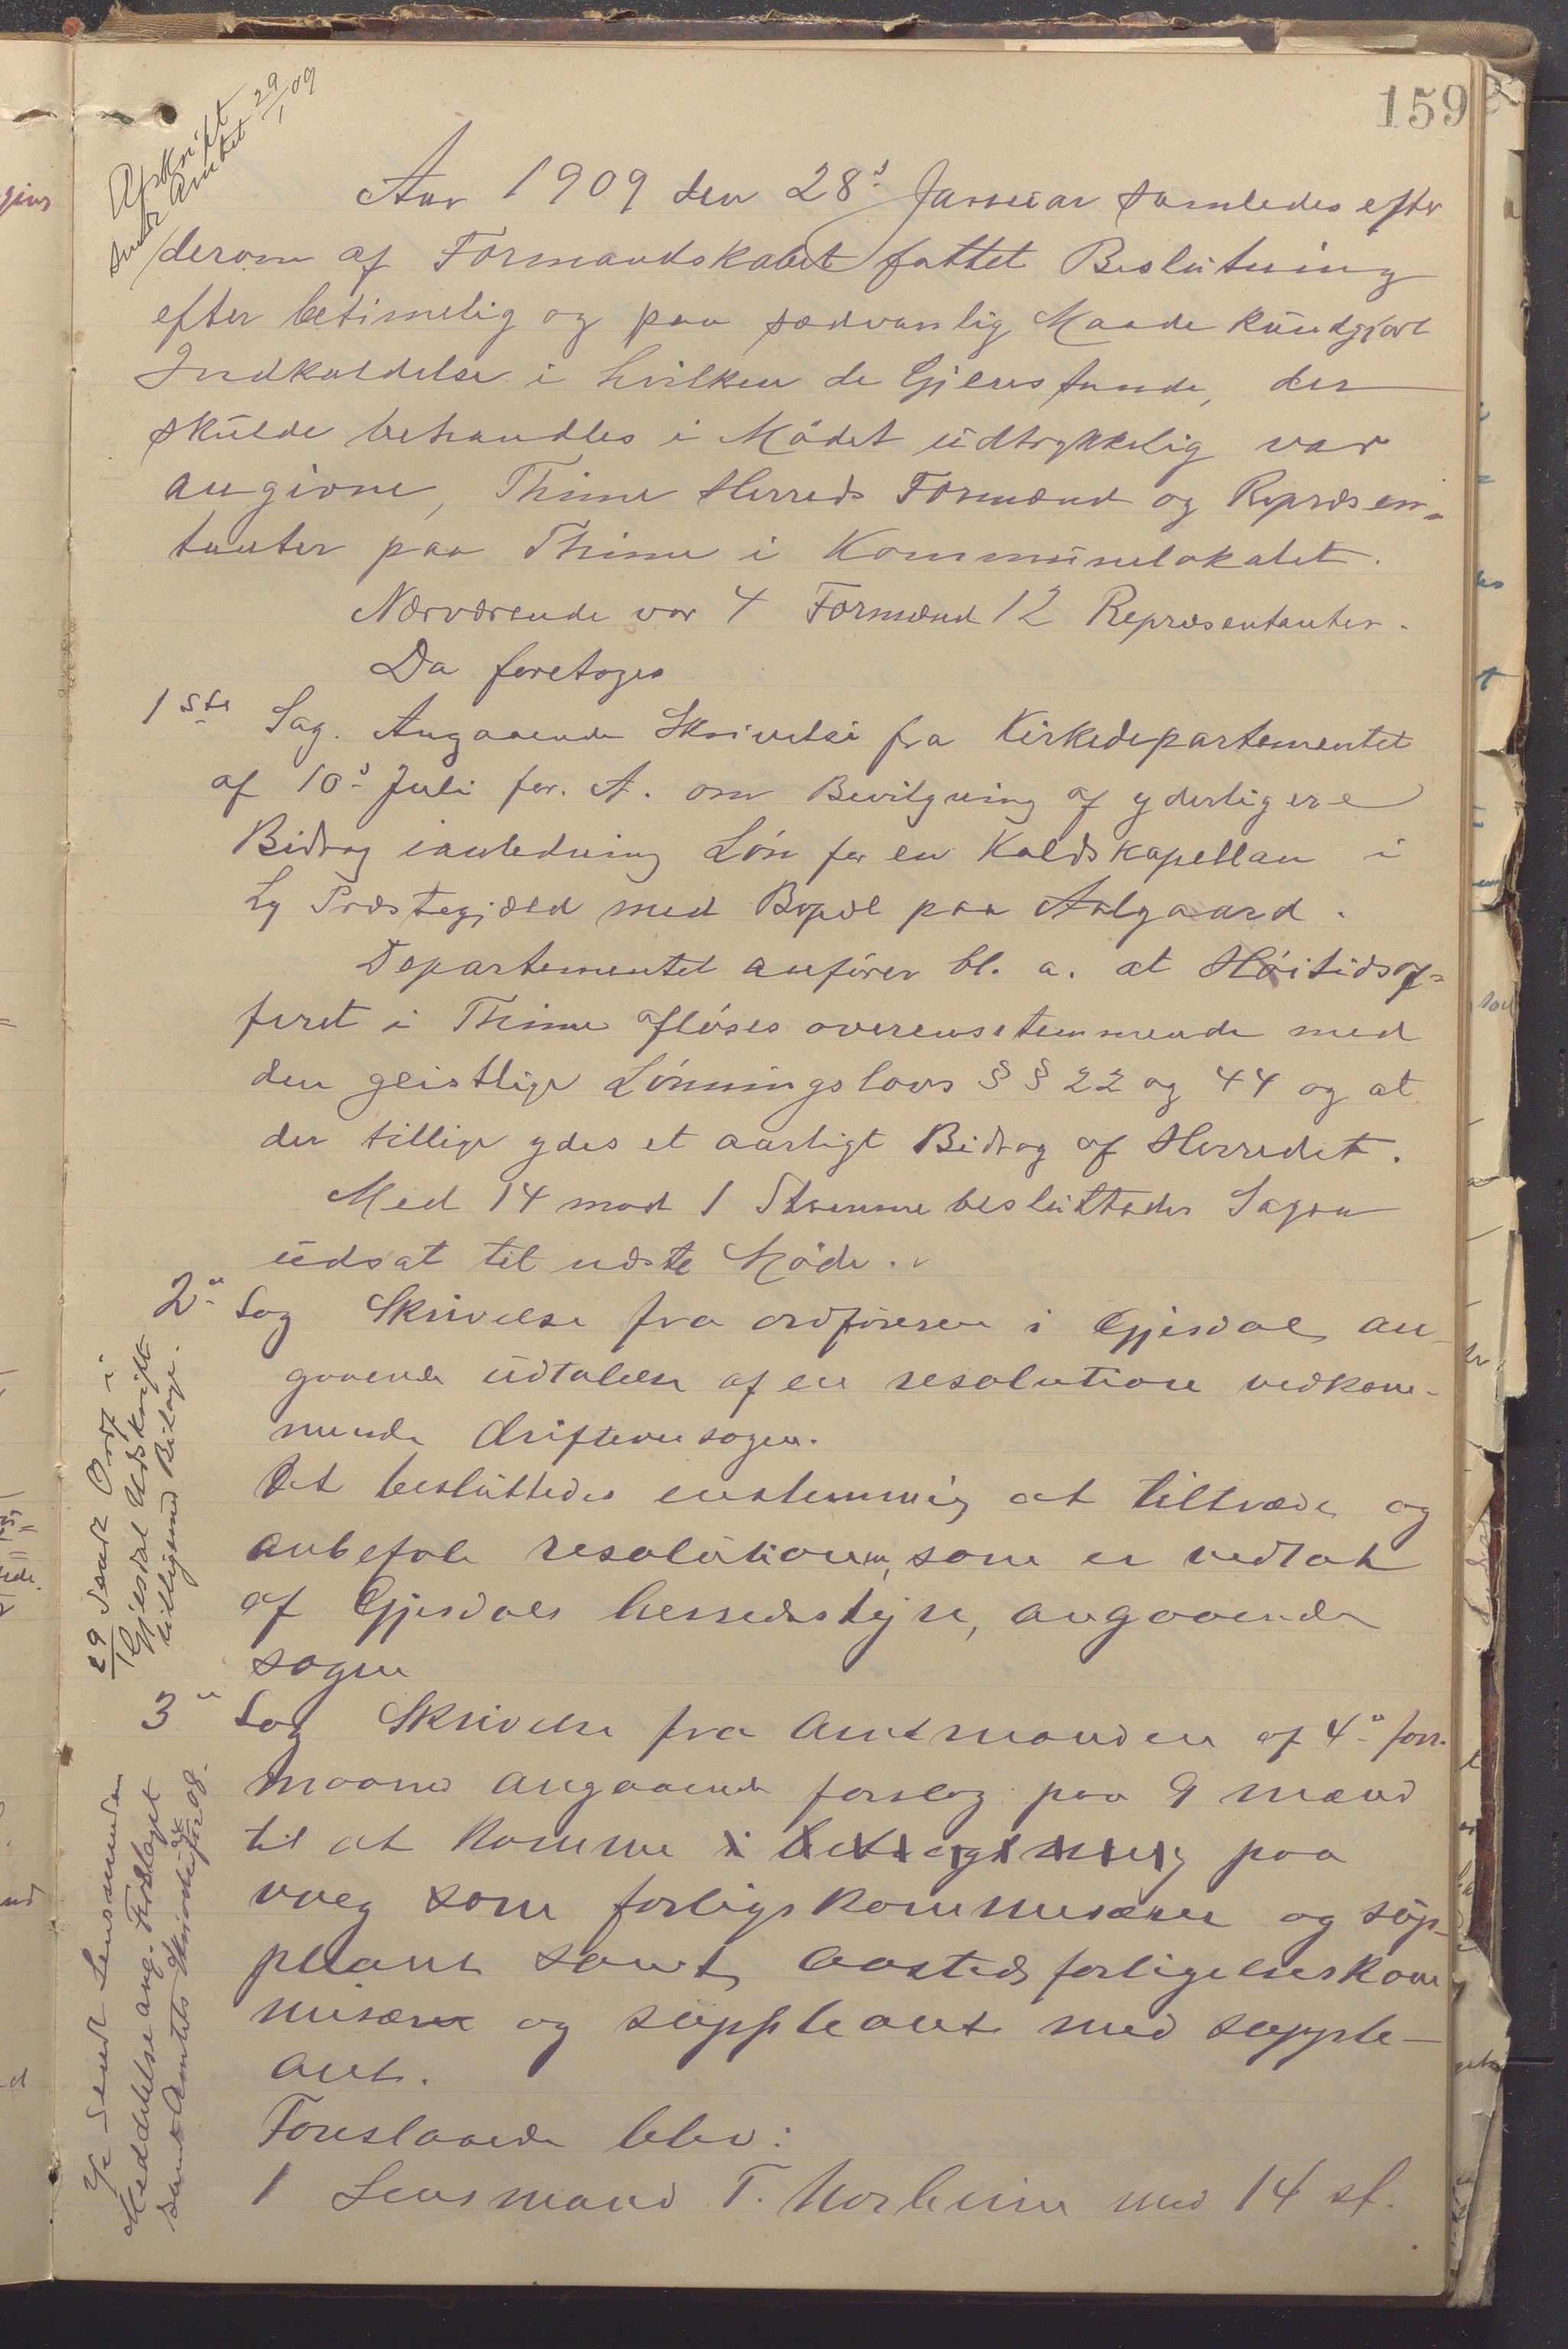 159
Afskrift
sendt Amtet 29/1 09
Aar 1909 den 28de Januar samledes efter
derom af Formandskabet fattet Beslutning
efter betimelig og paa sædvanlig Maade kundgjort
Indkaldelse i hvilken de Gjenstande, der
skulde behandles i Mødet udtrykkelig var
angivne, Thime Herreds Formænd og Repræsen-
tanter paa Thime i Kommunelokalet.
Nærværende var 4 Formænd 12 Repræsentanter.
Da foretoges
1ste Sag. Angaaende Skrivelse fra Kirkedepartementet
af 10de Juli for. A. om Bevilgning af yderligere
Bidrag i anledning Løn for en Kaldskapellan i
Ly Præstegjæld med Bopæl paa Aalgaard.
Departementet anfører bl. a. at Høitidsof-
feret i Thime afløses overensstemmende med
den geistlige Lønningslovs §§ 22 og 44 og at
der tillige ydes et aarligt Bidrag af Herredet.
Med 14 mod 1 Stemme besluttedes Sagen
udsat til næste Møde.
2en Sag Skrivelse fra ordføreren i Gjesdal an-
gaaende udtalelse af en resolution vedkom-
mende drifteveisagen.
Det besluttedes enstemmig at tiltræde og
anbefale resolutionen, som er vedtat
af Gjesdals herredsstyre, angaaende
sagen
29/1 sendt Ordf i
Gjesdal Udskrift
tilligemed Bilage.
3en Sag Skrivelse fra Amtmanden af 4de forr.
maaned angaaende forslag paa 9 mænd
til at komme i betragtning paa
valg som forligskommisærer og sup-
pleant samt aastedsforligelseskom
misær og suppleant med supple-
ant.
Foreslaaede blev:
1 Lensmand T. Norheim med 14 st.
sendt Lensmanden
Meddelelse ang. Forslaget
samt Amtets Skrivelse